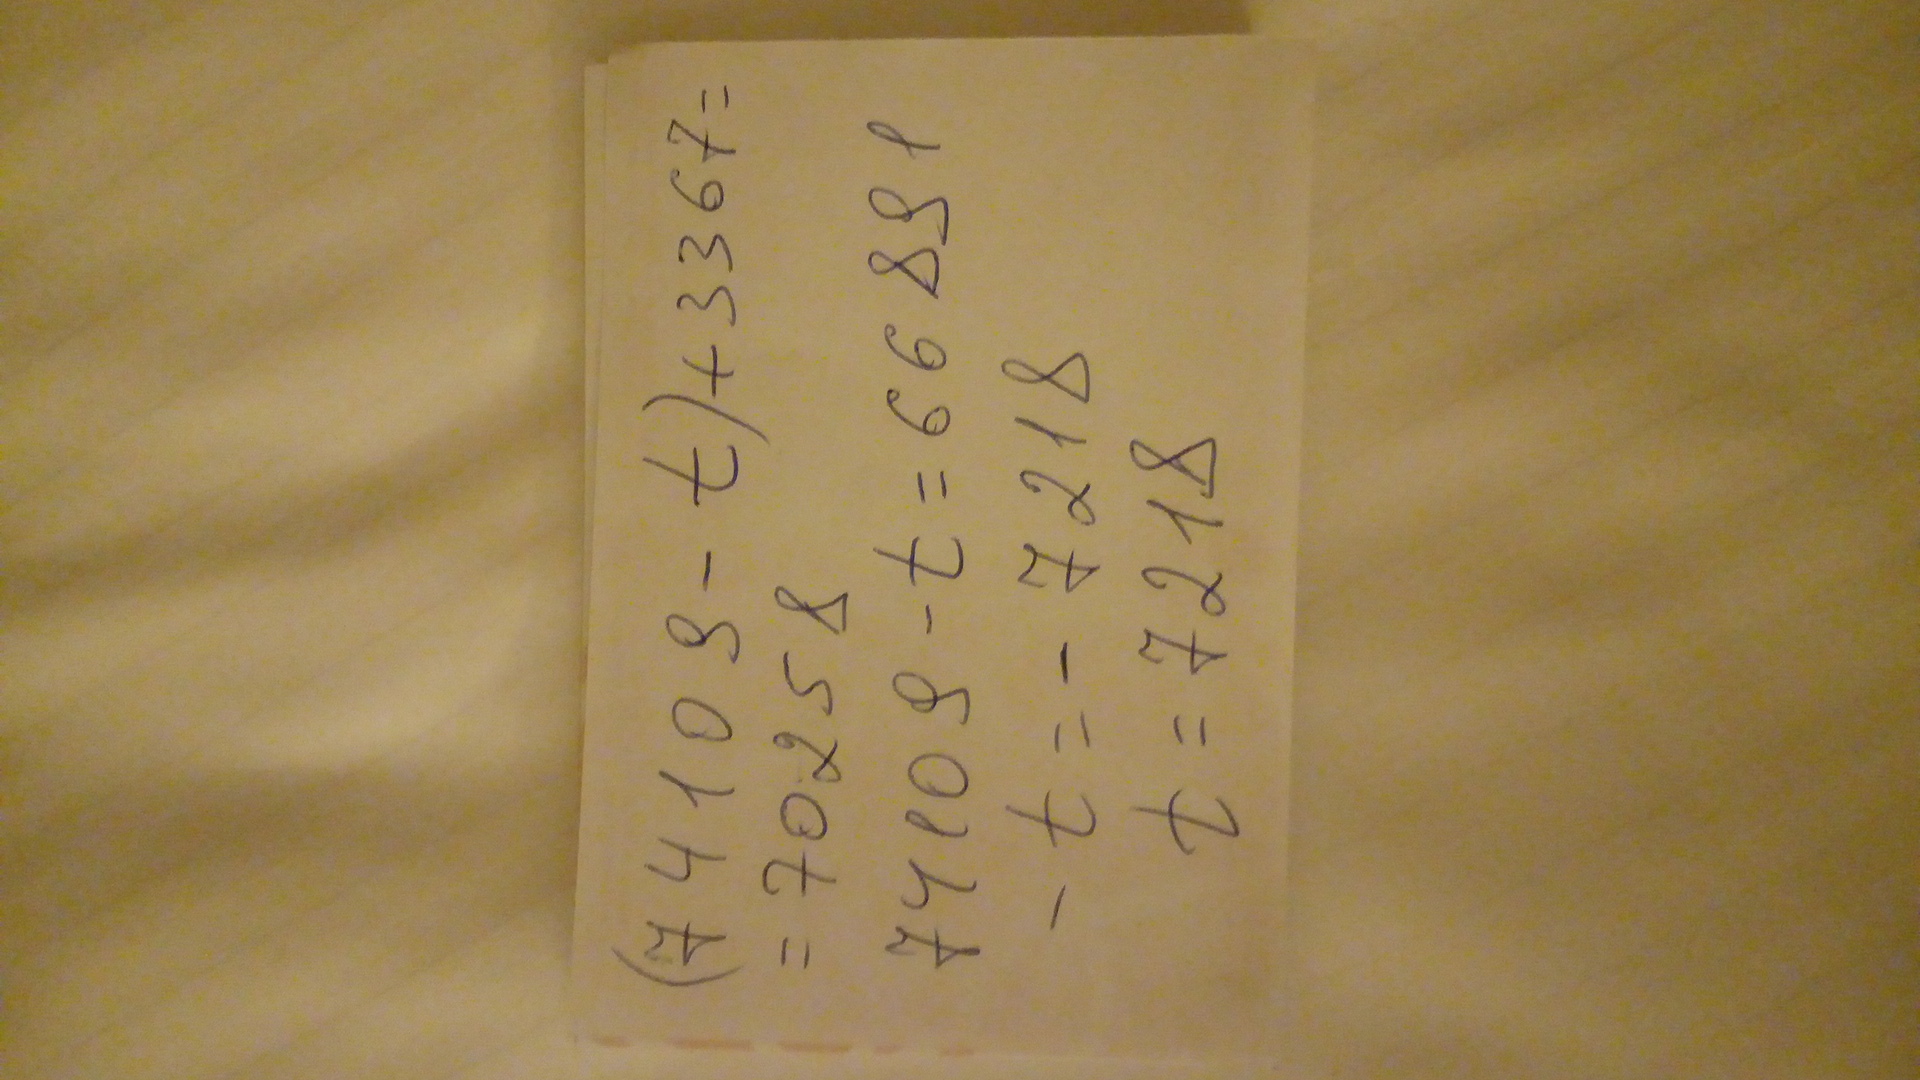 (74109-t)+3367=
=70258
74109-t=66891
-t=-7218
t=7218